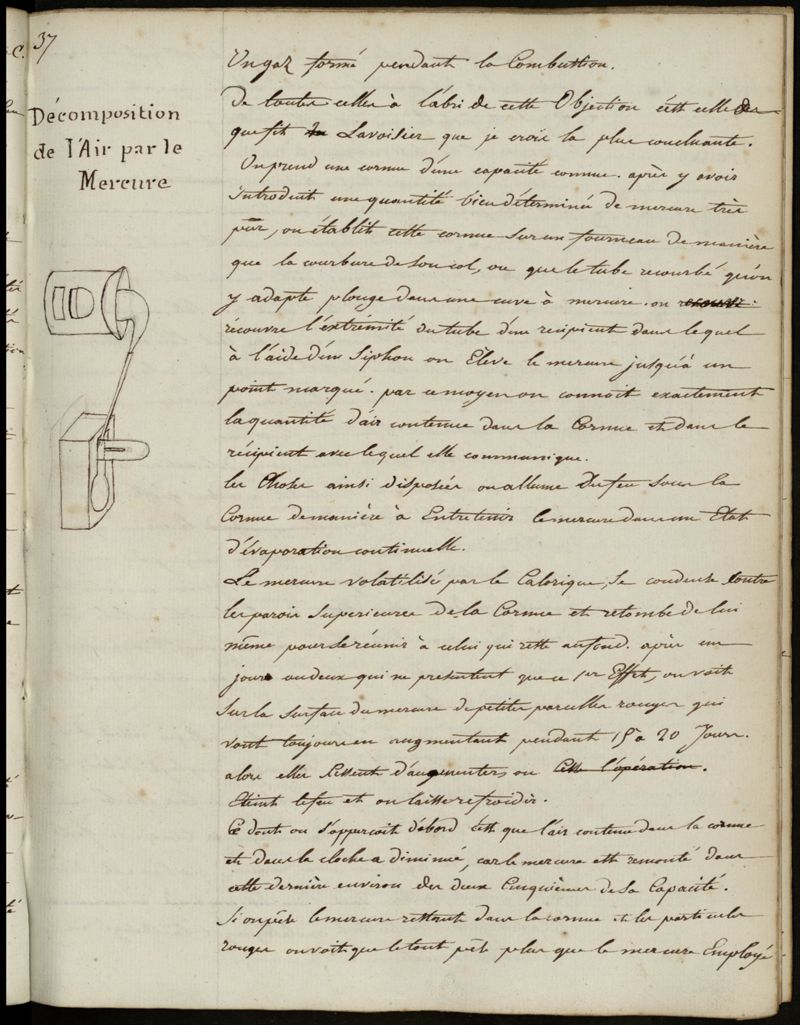 37
Décomposition
de l'Air par le
Mercure
Un gaz formé pendant la Combustion.
De toutes celles à l'abri de cette Objection c'est celle
que fit Lavoisier que je crois la plus concluante.
On prend une cornue d'une capacité connue. après y avoir
introduit une quantité bien déterminée de mercure très
pur, on établit cette cornue sur un fourneau de manière
que la courbure de son col, ou que le tube recourbé qu'on
y adapte plonge dans une cuve à mercure. on
recouvre l'extrémité du tube d'un récipient dans lequel
à l'aide d'un Siphon on Elève le mercure jusqu'à un
point marqué. par ce moyen on connoit exactement
la quantité d'air contenue dans la Cornue et dans le
récipient avec lequel elle communique.
les Choses ainsi disposées on allume Du feu sous la
Cornue de manière à Entretenir le mercure dans un Etat
d'évaporation continuelle.
Le mercure volatilisé par le Calorique, se condense contre
les parois Supérieures de la Cornue et retombe de lui
même pour se réunir à celui qui reste au fond. après un
jour ou deux qui ne présentent que ce 1er Effet, on voit
sur la surface du mercure de petites parcelles rouges qui
vont toujours en augmentant pendant 15 à 20 Jours.
alors elles cessent d'augmenter, on cesse l'opération.
Eteint le feu et on laisse refroidir.
Ce dont on s'apperçoit d'abord c'est que l'air contenu dans la cornue
et dans la cloche a diminué, car le mercure est remonté dans
cette dernière environ des deux Cinquièmes de sa Capacité.
Si on pèse le mercure restant dans la cornue et les particules
rouges on voit que le tout pèse plus que le mercure Employé